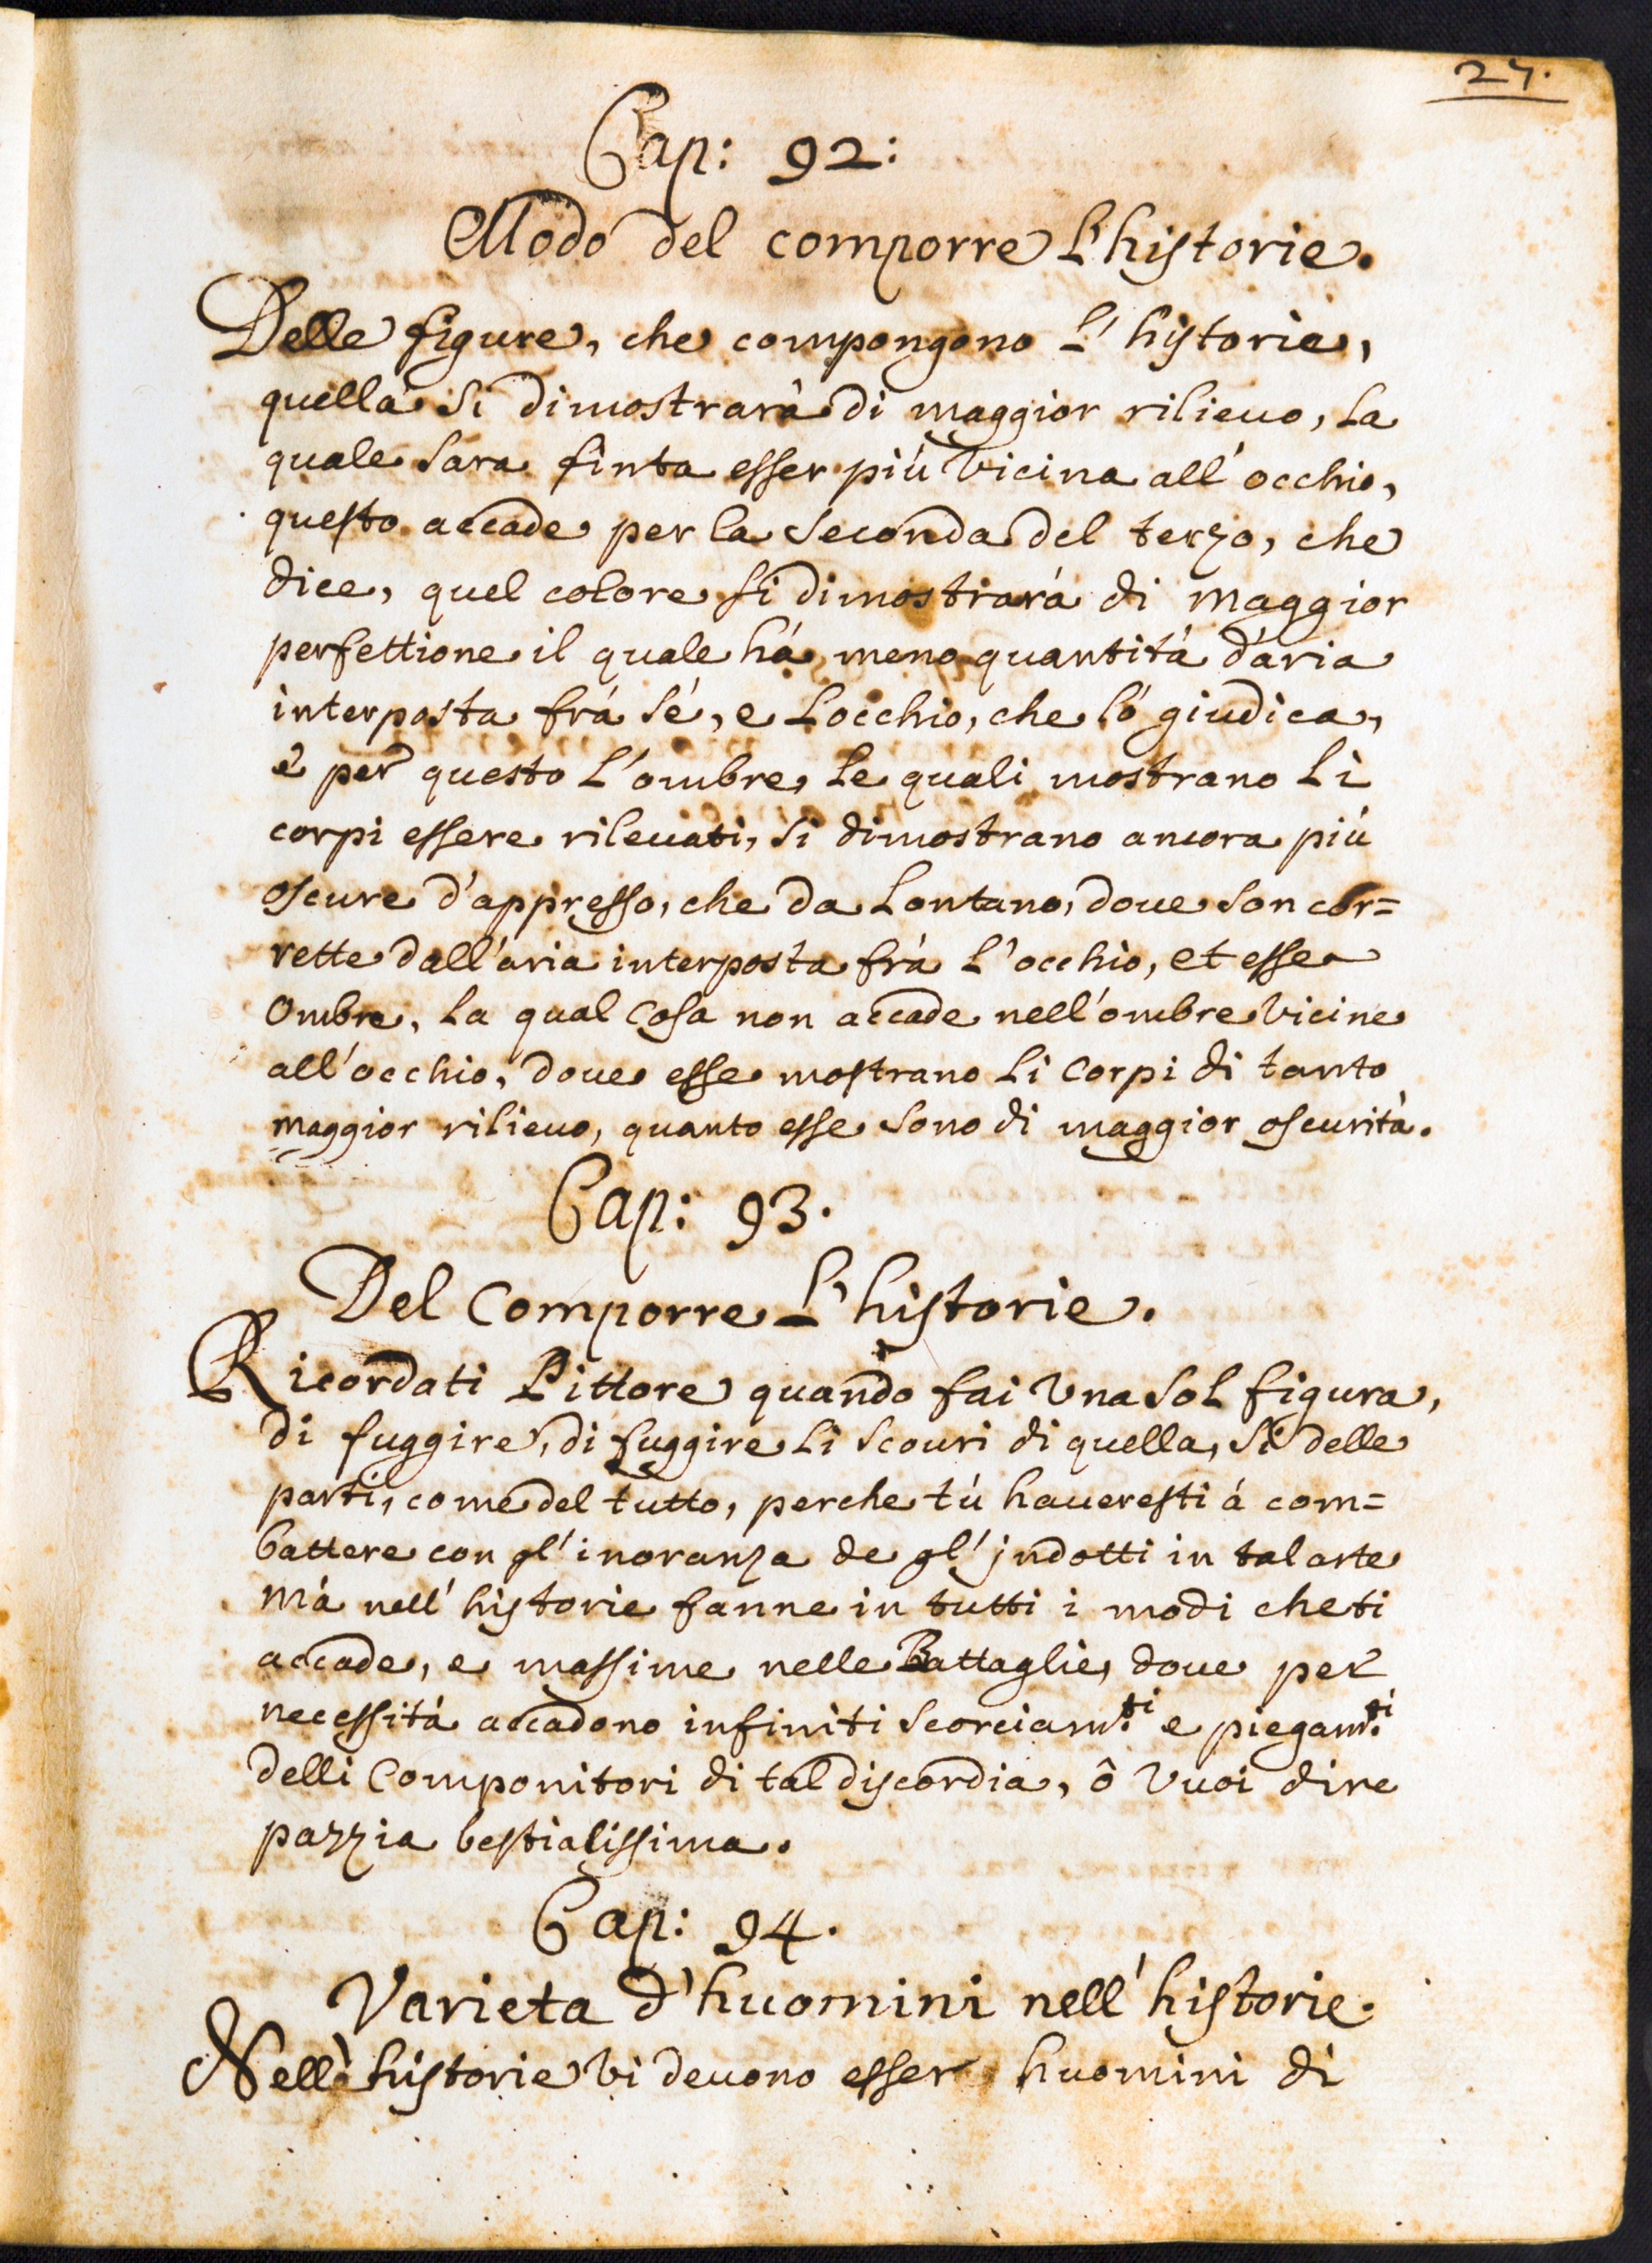 27.
Cap: 92:
Modo del comporre L'historie.
Delle figure, che compongono L'historie,
quella si dimostrarà di maggior rilieuo, la
quale sara finta esser più vicina all'occhio,
questo accade per la seconda del terzo, che
dice, quel colore si dimostrarà di maggior
perfettione il quale há meno quantitá d'aria
interposta frá sé, e Locchio, che ló giudica,
è per questo L'ombre, le quali mostrano Li
corpi essere rileuati, si dimostrano ancora più
oscure d'appresso, che da Lontano, doue son cor=
rette dall'aria interposta frà L'occhio, et esse
Ombre, La qual cosa non accade nell'ombre vicine
all'occhio, doue esse mostrano Li Corpi di tanto
maggior rilieuo, quanto esse sono di maggior oscurità.
Cap: 93.
Del Comporre L'historie.
Ricordati Pittore quando fai Vna sol figura,
di fuggire, di fuggire Li scouri di quella, sì delle
parti, come del tutto, perche tù haueresti á com=
battere con gl'inoranza de gl'jndotti in tal arte
Má nell'historie fanne in tutti i modi che ti
accade, e massime nelle Battaglie, doue per
necessitá accadono infiniti scorciam.ti e piegam.ti
delli Componitori di tal discordia, ô Vuoi dire
pazzia bestialissima.
Cap: 94.
Varieta d'huomini nell'historie.
Nell'historie vi deuono esser huomini di